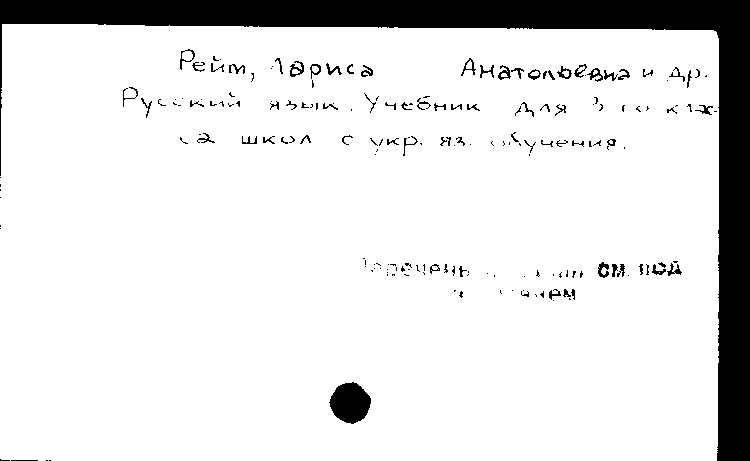 Рейт, Лариса Анатольевна и др.
Русский язык. Учебник для 3 го клас-
са школ с укр. яз. обучения.
Перечень см. под